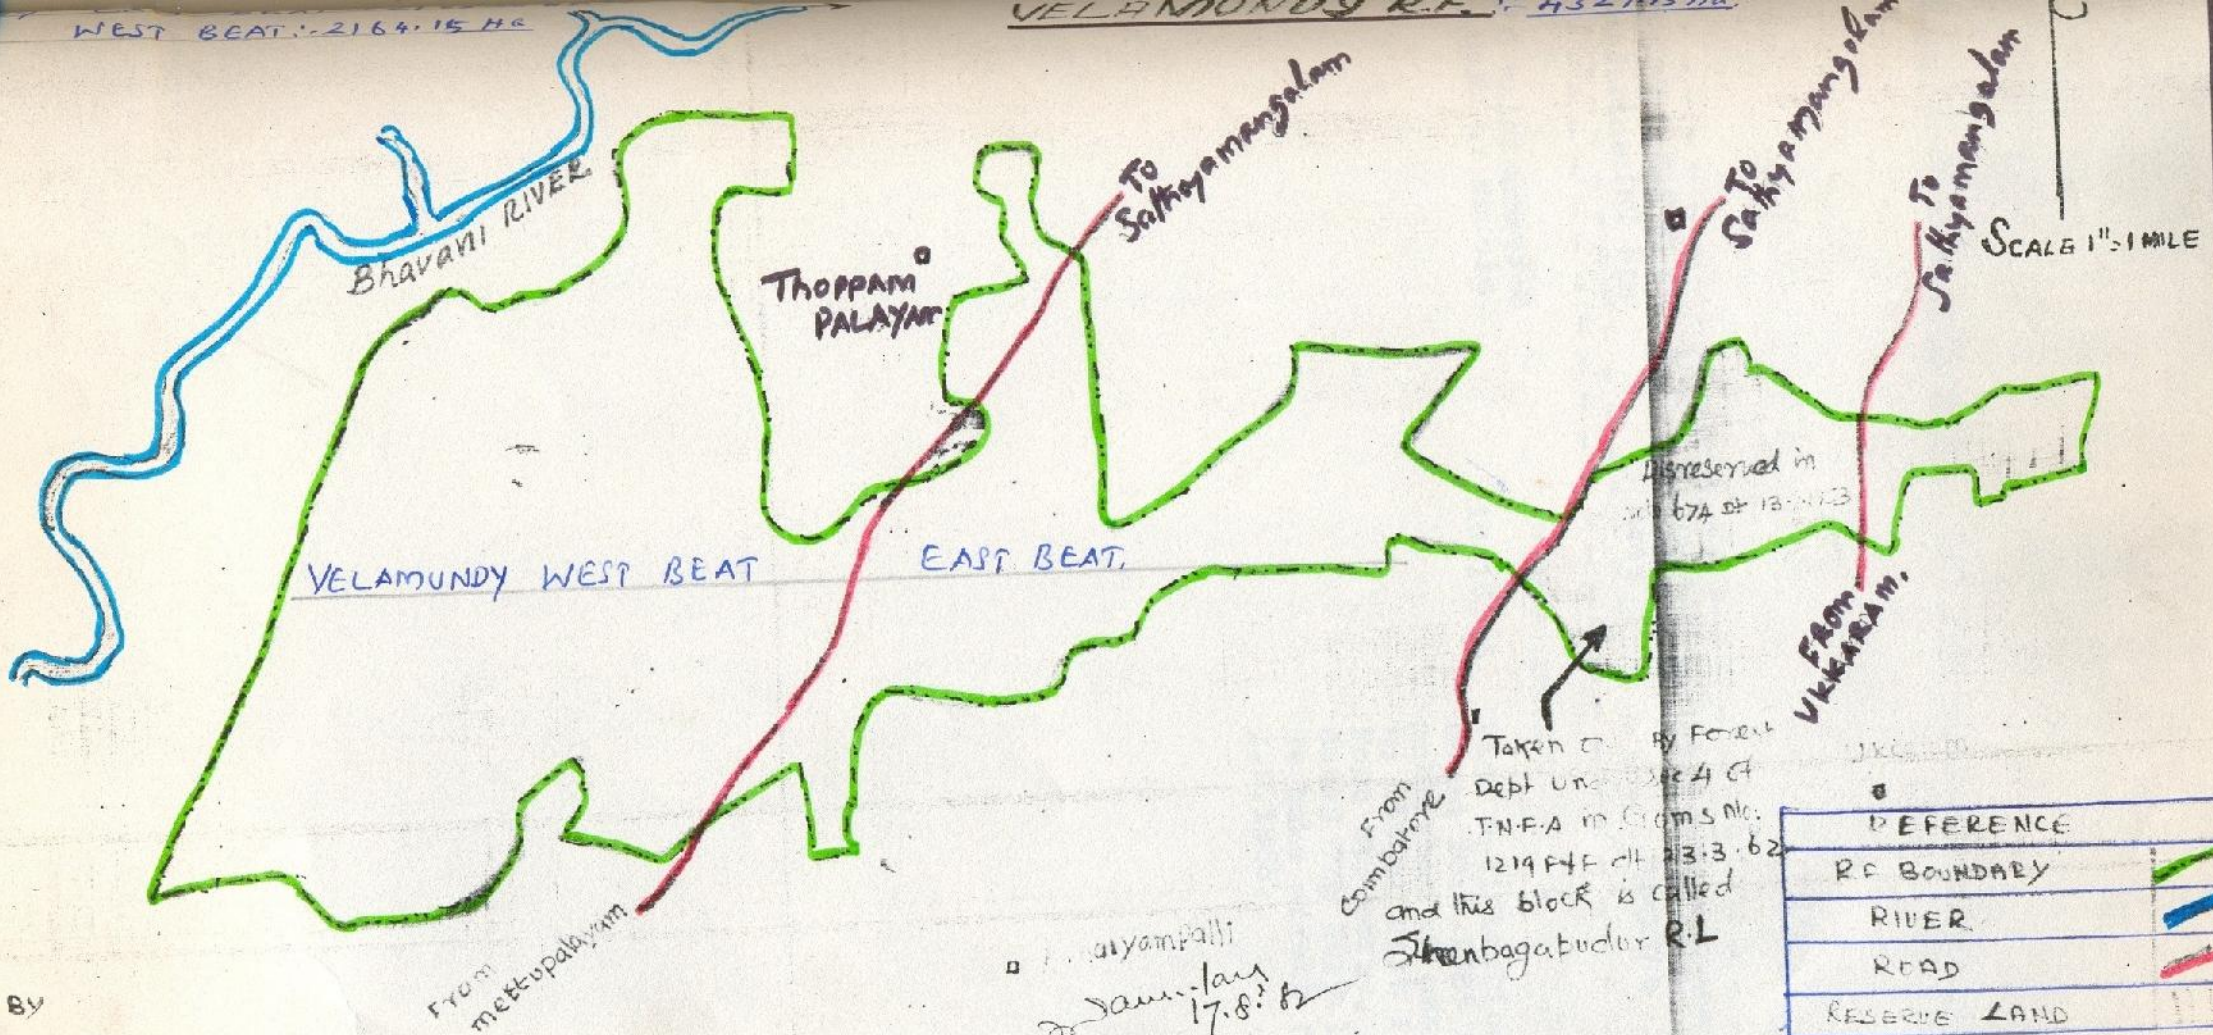 WEST BEAT:- 2164.15 Ha
VELAMUNDY R.F. :-
To
Sathyamangalam
To
Sathyamangalam
To
Sathyamangalam
SCALE 1"=1 MILE
Bhavani RIVER
Thoppam
PALAYAM
Disreserved in
674 dt 13
VELAMUNDY WEST BEAT
EAST BEAT.
FROM
UKKARAM.
Taken By Forest
Dept 4 of
T.N.F.A in G.oms No.
1219 F&F dt 23.3.62
and this block is called
Shenbagabudur R.L
From
Coimbatore
From
mettupalayam
17.8.82
By
REFERENCE
R.F BOUNDARY
RIVER
ROAD
RESERVE LAND